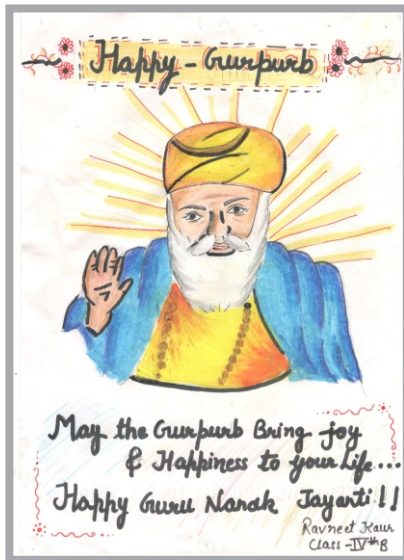 Happy - Gurpurb
May the Gurpurb Bring joy
& Happiness to your Life...
Happy Guru Nanak Jayanti !!
Ravneet Kaur
Class - IVth B